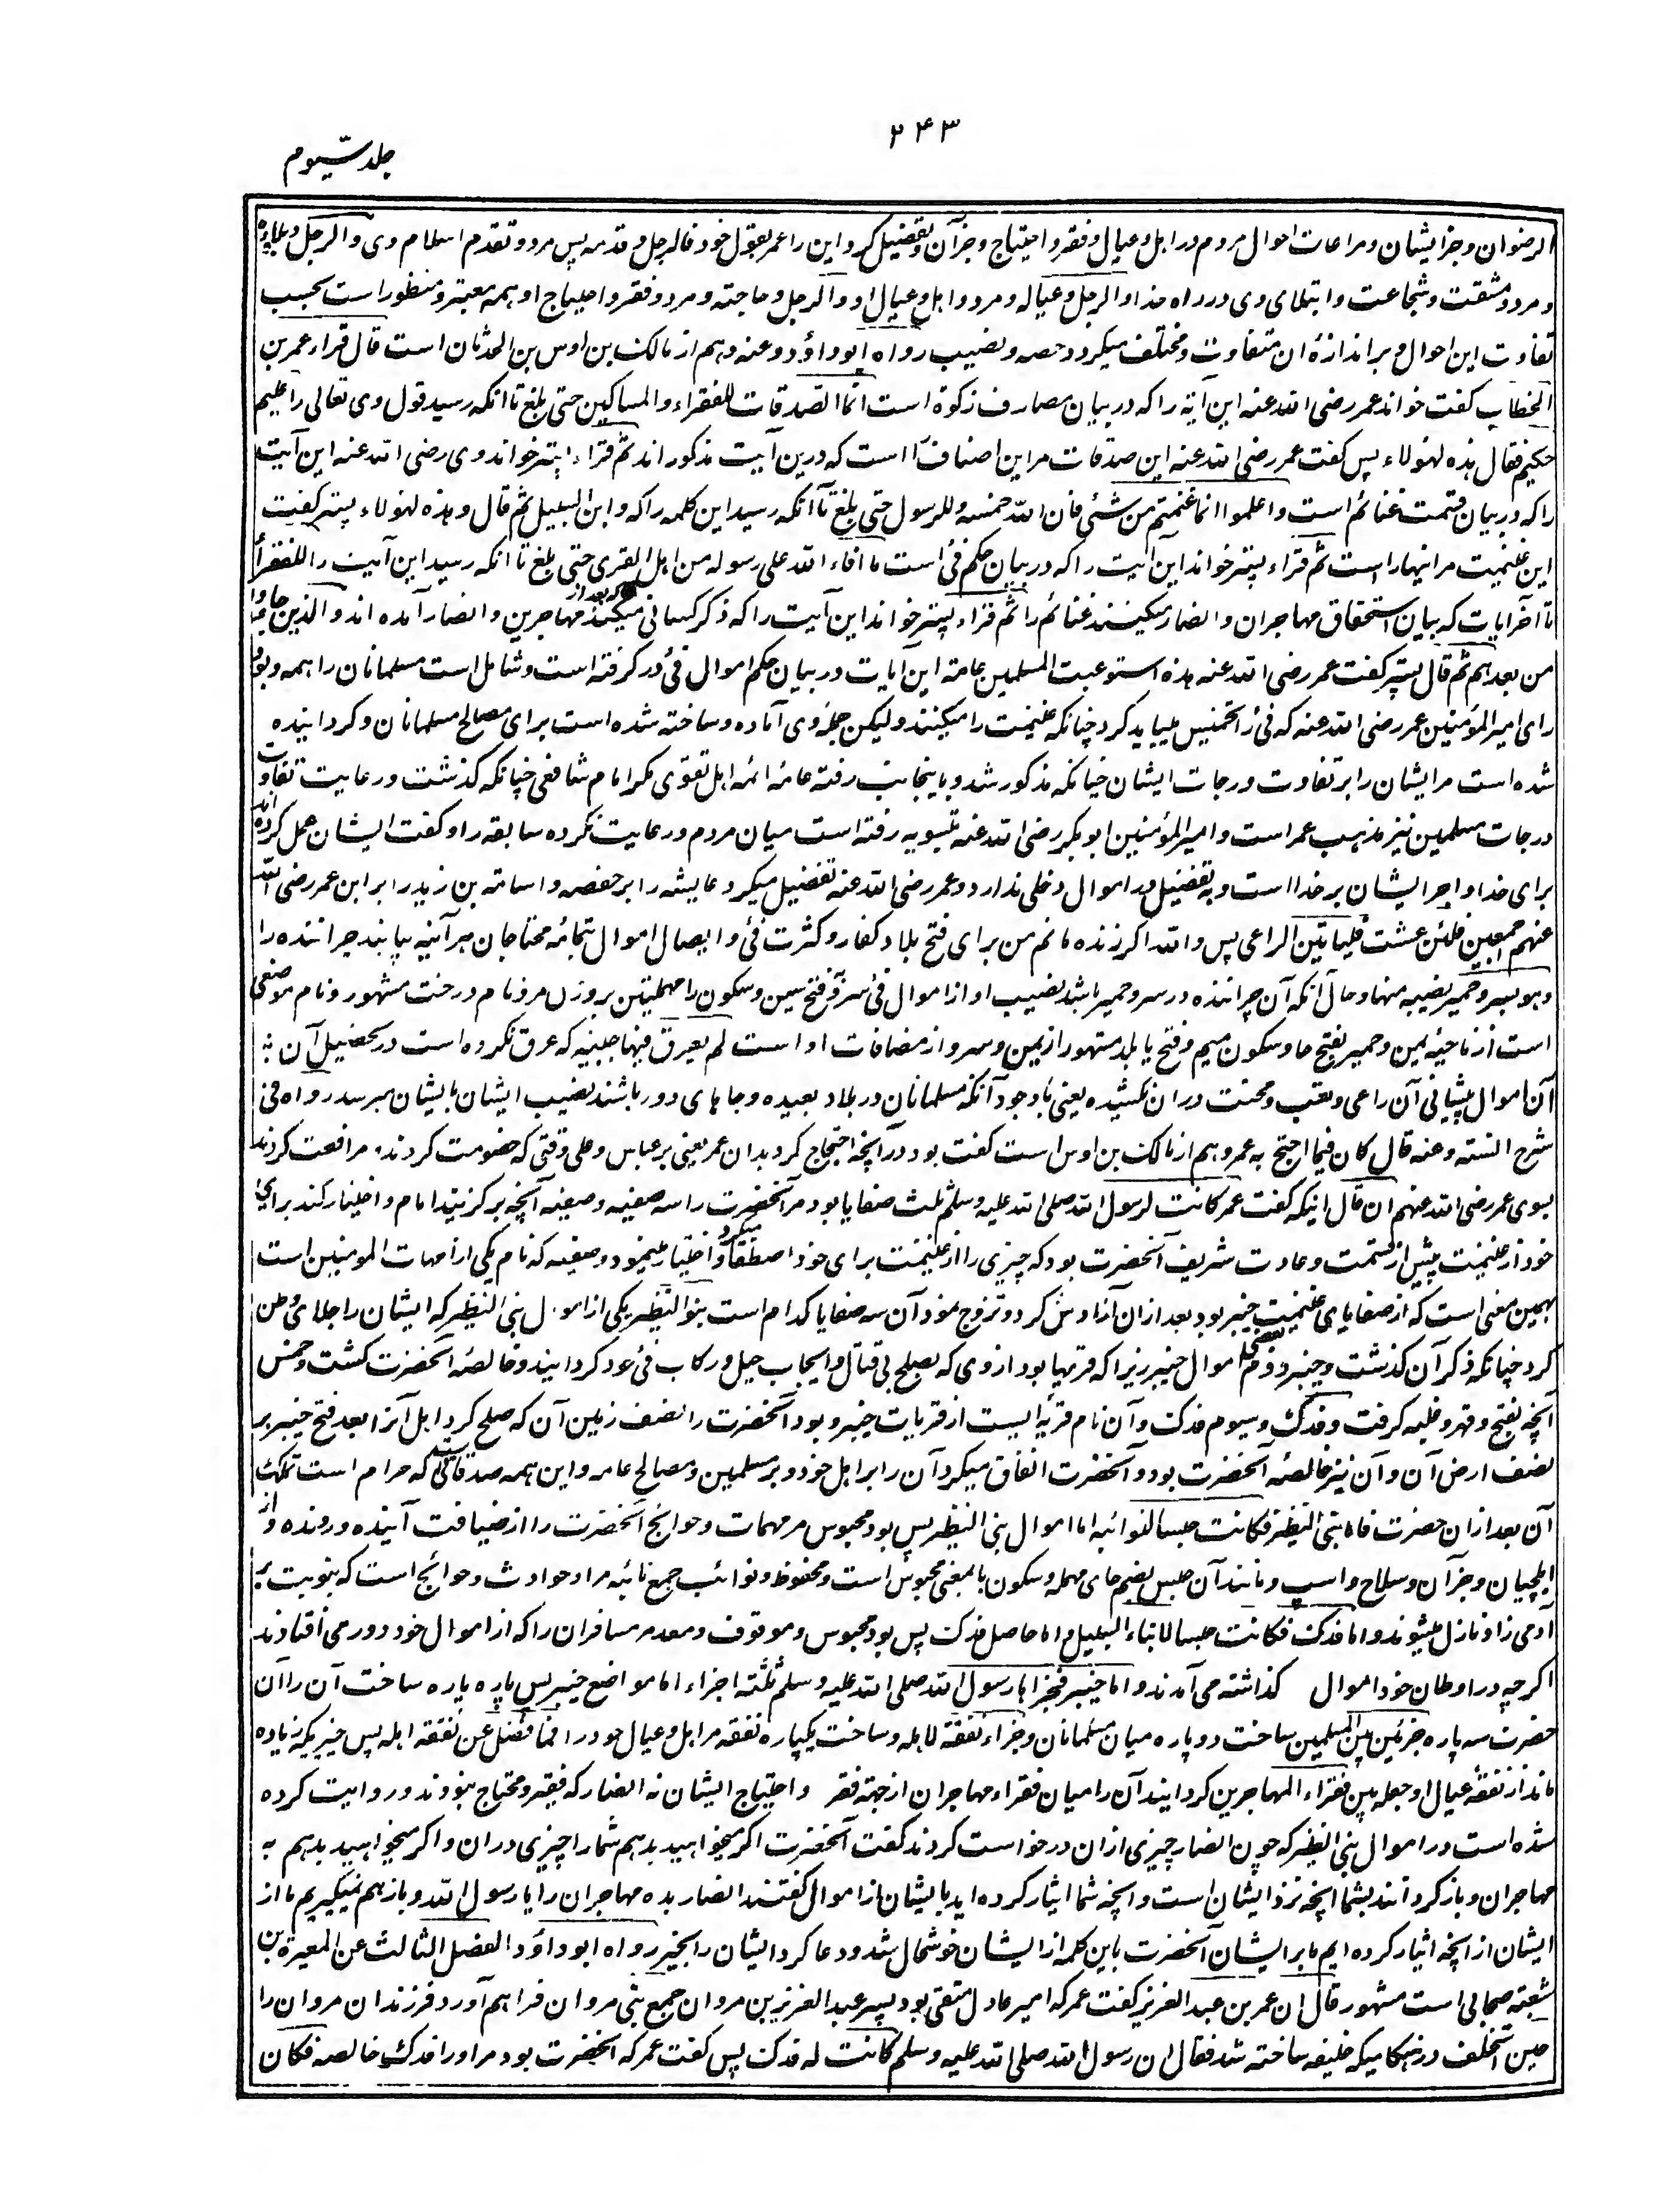 ۲۴۳
جلد سیوم
الرضوان و جز ایشان و مراعات احوال مردم در اهل و عیال و فقر و احتیاج و جز آن و تفضیل کرد و این را عمر بقول خود فالرجل و قدمه پس مرد و تقدم اسلام وی و الرجل و بلاؤه
و مرد و مشقت و شجاعت و ابتلای وی در راه خدا و الرجل و عیاله و مرد و اهل و عیال او و الرجل و حاجته و مرد و فقر و احتیاج او همه معتبر و منظور است بحسب
تفاوت این احوال و بر اندازهٔ ان متفاوت و مختلف میکردد حصه و نصیب رواه ابو داؤد و عنه و هم از مالک بن اوس بن الحدثان است قال قراء عمر بن
الخطاب کفت خواند عمر رضی الله عنه این آیه را که در بیان مصارف زکوة است انما الصدقات للفقراء و المساکین حتی بلغ تا انکه رسید قول وی تعالی را علیم
حکیم فقال هذه لهؤلاء پس کفت عمر رضی الله عنه این صدقات مر این اصناف را است که درین آیت مذکور اند ثم قراء پستر خواند وی رضی الله عنه این آیت
را که در بیان قسمت غنائم است و اعلموا انما غنمتم من شئی فان لله خمسه و للرسول حتی بلغ تا آنکه رسید این کلمه را که و ابن السبیل ثم قال و هذه لهؤلاء پستر کفت
این غنیمت مر اینها راست ثم قراء پستر خواند این آیت را که در بیان حکم فئ است ما افاء الله علی رسوله من اهل القری حتی بلغ تا انکه رسید این آیت را للفقراء
تا آخر ایات که بیان استحقاق مهاجران و انصار میکنند غنائم را ثم قراء پستر خواند این آیت را که ذکر کسانی میکند که بعد از مهاجرین و انصار آمده اند و الذین جاءوا
من بعدهم ثم قال پستر کفت عمر رضی الله عنه هذه استوعبت المسلمین عامة این آیات در بیان حکم اموال فئ در کرفته است و شامل است مسلمانان را همه و بود
رای امیر المؤمنین عمر رضی الله عنه که فئ را تخمیس نمیباید کرد چنانکه غنیمت را میکنند و لیکن جملهٔ وی آماده و ساخته شده است برای مصالح مسلمانان و کردانیده
شده است مر ایشان را بر تفاوت درجات ایشان چنانکه مذکور شد و باینجانب رفته عامهٔ ائمه اهل فتوی مکر امام شافعی چنانکه کذشت و رعایت تفاوت
درجات مسلمین نیز مذهب عمر است و امیر المؤمنین ابو بکر رضی الله عنه بتسویه رفته است میان مردم و رعایت نکرده سابقه را و کفت ایشان عمل کرده اند
برای خدا و اجر ایشان بر خدا است و به تفضیل در اموال دخلی ندارد و عمر رضی الله عنه تفضیل میکرد عایشه را بر حفصه و اسامة بن زید را بر ابن عمر رضی الله
عنهم اجمعین فلئن عشت فلیاتین الراعی پس و الله اکر زنده مانم من برای فتح بلاد کفار و کثرت فئ و ایصال اموال بتمامهٔ محتاجان هر آئینه بیابند چراننده را
و هو بسرو حمیر نصیبه منها و حال آنکه آن چراننده در سرو حمیر باشد نصیب او از اموال فئ سرو بفتح سین و سکون را مهملتین بر وزن مرو نام درخت مشهور و نام موضعی
است از ناحیهٔ یمن و حمیر بفتح حا و سکون میم و فتح یا بلد مشهور از یمن و سرو از مضافات او است لم یعرق فیها جبینه که عرق نکرده است در تحصیل آن
آن اموال پیشانی آن راعی و تعب و محنت در ان نکشیده یعنی با وجود آنکه مسلمانان در بلاد بعیده و جاهای دور باشند نصیب ایشان بایشان میرسد رواه فی
شرح السنة و عنه قال کان فیما احتج به عمر و هم از مالک بن اوس است کفت بود در آنچه احتجاج کرد بدان عمر یعنی بر عباس و علی وقتی که خصومت کردند و مرافعت کردند
بسوی عمر رضی الله عنهم ان قال اینکه کفت عمر کانت لرسول الله صلی الله علیه و سلم ثلث صفایا بود مر آنحضرت را سه صفیه و صفیه آنچه بر کزیند امام و اختیار کند برای
خود از غنیمت پیش از قسمت و عادت شریف آنحضرت بود که چیزی را از غنیمت برای خود اصطفا میکرد و اختیار مینمود و صفیه که نام یکی از امهات المومنین است
بهمین معنی است که از صفایای غنیمت خیبر بود بعد از ان آزادش کرد و تزوج نمود آن سه صفایا کدام است بنو النظیر یکی از اموال بنی النظیر که ایشان را جلای وطن
کرد چنانکه ذکر آن کذشت و خیبر دوم اموال خیبر زیرا که قریها بود از وی که بصلح بی قتال و ایجاب خیل و رکاب فئ عود کردانید و خالصهٔ آنحضرت کشت و خمس
آنچه بفتح و قهر و غلبه کرفت و فدک و سیوم فدک و آن نام قریهٔ ایست از قریات خیبر و بود آنحضرت را نصف زمین آن که صلح کرد اهل آنرا بعد فتح خیبر بر
نصف ارض آن و آن نیز خالصهٔ آنحضرت بود و آنحضرت انفاق میکرد آن را بر اهل خود و بر مسلمین و مصالح عامه و این همه صدقات که حرام است تملک
آن بعد از ان حضرت فاما بنی النظیر فکانت حبسا لنوائبه اما اموال بنی النظیر پس بود محبوس مر مهمات و حوایج آنحضرت را از ضیافت آینده و رونده و از
ایلچیان و جز آن و سلاح و اسپ و مانند آن حبس بضم حای مهمله و سکون با بمعنی محبوس است و محفوظ و نوائب جمع نائبه مراد حوادث و حوائج است که بنوبت بر
آدمی زاد نازل میشوند و اما فدک فکانت حبسا لابناء السبیل و اما حاصل فدک پس بود محبوس و موقوف و معد مر مسافران را که از اموال خود دور می افتادند
اکرچه در اوطان خود اموال کذاشته می آمدند و اما خیبر فجزاها رسول الله صلی الله علیه و سلم ثلثة اجزاء اما مواضع خیبر پس پاره پاره ساخت آن را آن
حضرت سه پاره جزئین بین المسلمین ساخت دو پاره میان مسلمانان و جزاء نفقة لاهله و ساخت یکپاره نفقه مر اهل و عیال خود را فما فضل عن نفقة اهله پس چیزیکه زیاده
ماند از نفقهٔ عیال او جعله بین فقراء المهاجرین کردانید آن را میان فقراء مهاجران از جهة فقر و احتیاج ایشان نه انصار که فقیر و محتاج نبودند و روایت کرده
شده است در اموال بنی النظیر که چون انصار چیزی از ان درخواست کردند کفت آنحضرت اکر میخواهید بدهم شما را چیزی در ان و اکر میخواهید بدهم به
مهاجران و باز کردانند بشما انچه نزد ایشان است و انچه شما ایثار کرده اید بایشان از اموال کفتند انصار بده مهاجران را یا رسول الله و باز هم نمیکیریم ما از
ایشان از انچه ایثار کرده ایم ما بر ایشان آنحضرت باین کلمه از ایشان خوشحال شد و دعا کرد ایشان را بخیر رواه ابو داؤد الفصل الثالث عن المغیرة بن
شعبة صحابی است مشهور قال ان عمر بن عبد العزیز کفت عمر که امیر عادل متقی بود پسر عبد العزیز بن مروان جمع بنی مروان فراهم آورد فرزندان مروان را
حین استخلف در هنکامیکه خلیفه ساخته شد فقال ان رسول الله صلی الله علیه و سلم کانت له فدک پس کفت عمر که آنحضرت بود مر او را فدک خالصه فکان